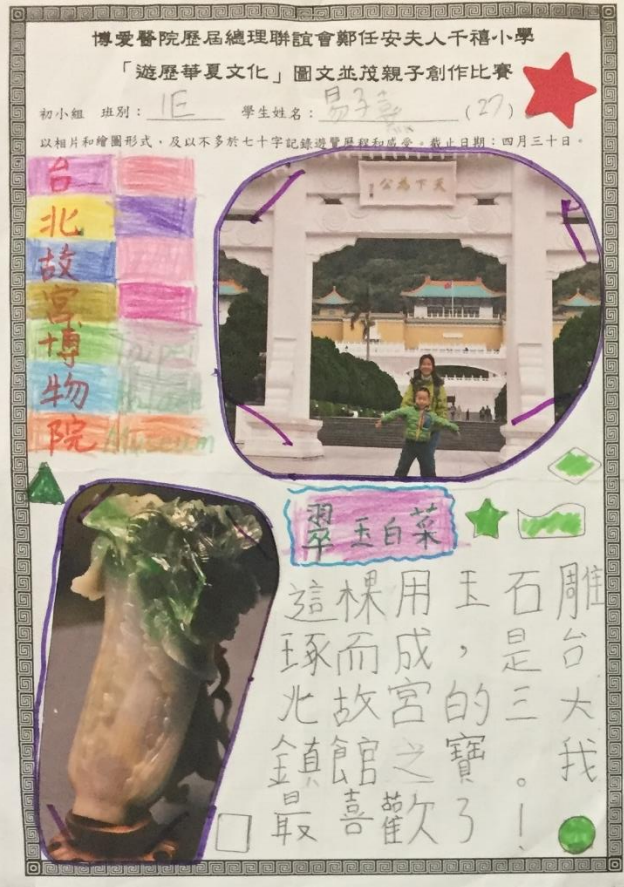 博愛醫院歷屆總理聯誼會鄭任安夫人千禧小學
「遊歷華夏文化」圖文並茂親子創作比賽
初小組 班別：1E 學生姓名：易子熹（27）
以相片和繪圖形式，及以不多於七十字記錄遊覽歷程和感受。截止日期：四月三十日。
台
北
故
宮
博
物
院 Museum
天下為公
翠玉白菜
這棵用玉石雕
琢而成，是台
北故宮的三大
鎮館之寶。我
最喜歡了！